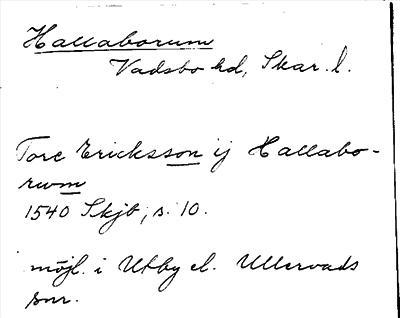 Hallaborum
Vadsbo hd, Skar. l.
Tore Ericksson ij Hallabo-
rum
1540 Skjb, s. 10.
möjl. i Utby el. Ullervads
snr.